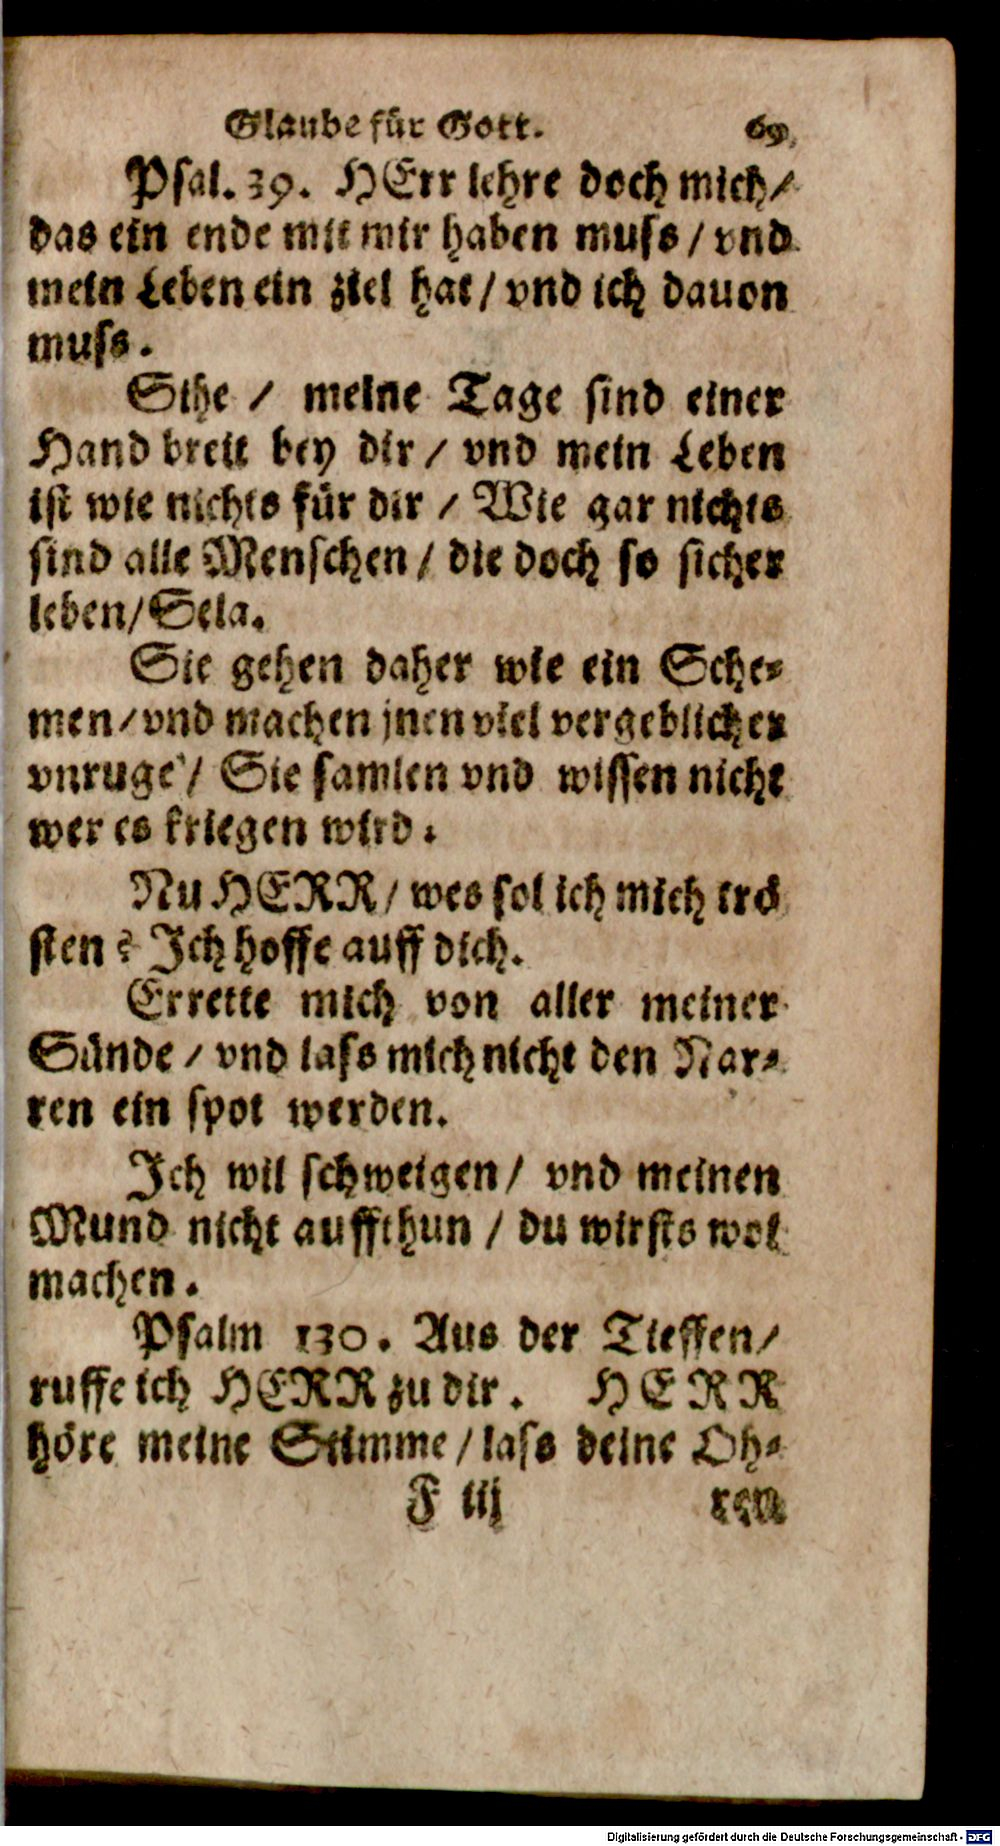 Glaube für Gott. 69
Psal. 39. HErr lehre doch mich/
das ein ende mit mir haben muss/ vnd
mein Leben ein ziel hat/ vnd ich dauon
muss.
Sihe / meine Tage sind einer
Hand breit bey dir/ vnd mein Leben
ist wie nichts für dir / Wie gar nichts
sind alle Menschen/ die doch so sicher
leben/Sela.
Sie gehen daher wie ein Sche-
men/vnd machen jnen viel vergeblicher
vnruge/ Sie samlen vnd wissen nicht
wer es kriegen wird.
Nu HERR/ wes sol ich mich trö
sten? Ich hoffe auff dich.
Errette mich von aller meiner
Sünde / vnd lass mich nicht den Nar-
ren ein spot werden.
Ich wil schweigen/ vnd meinen
Mund nicht auffthun / du wirsts wol
machen.
Psalm 130. Aus der Tieffen/
ruffe ich HERR zu dir. HERR
höre meine Stimme/ lass deine Oh-
F iij ren
Digitalisierung gefördert durch die Deutsche Forschungsgemeinschaft - DFG